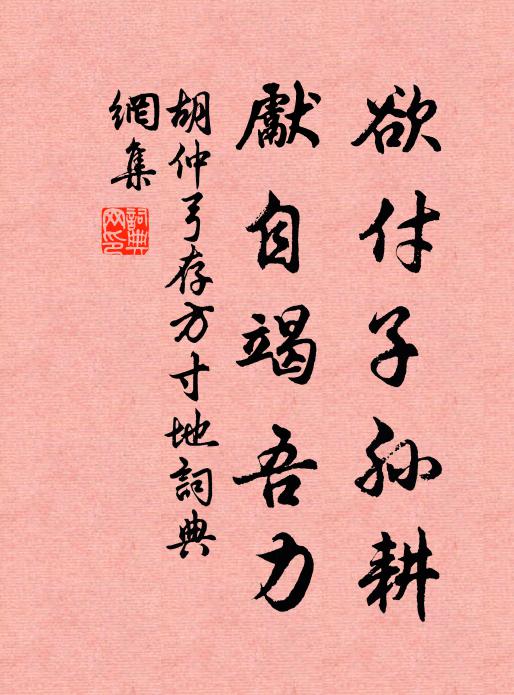 欲付子孙耕
獻自竭吾力
胡仲弓存方寸地詞典
網集
詞典
网印